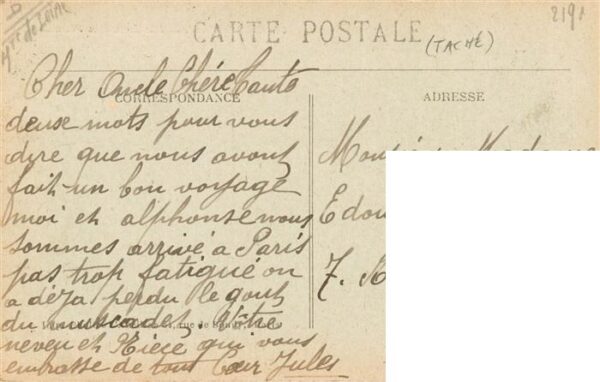 2191
CARTE POSTALE
(TACHÉ)
Cher Oncle Chère Tante
CORRESPONDANCE
deuse mots pour vous
dire que nous avont
fait un bon voyage
moi et alphonse nous
sommes arrivé a Paris
pas trop fatigué on
a déja perdu le gout
du muscadet, Votre
neveu et Nièce qui vous
embrasse de tout Cœur Jules
ADRESSE
Edou
7.